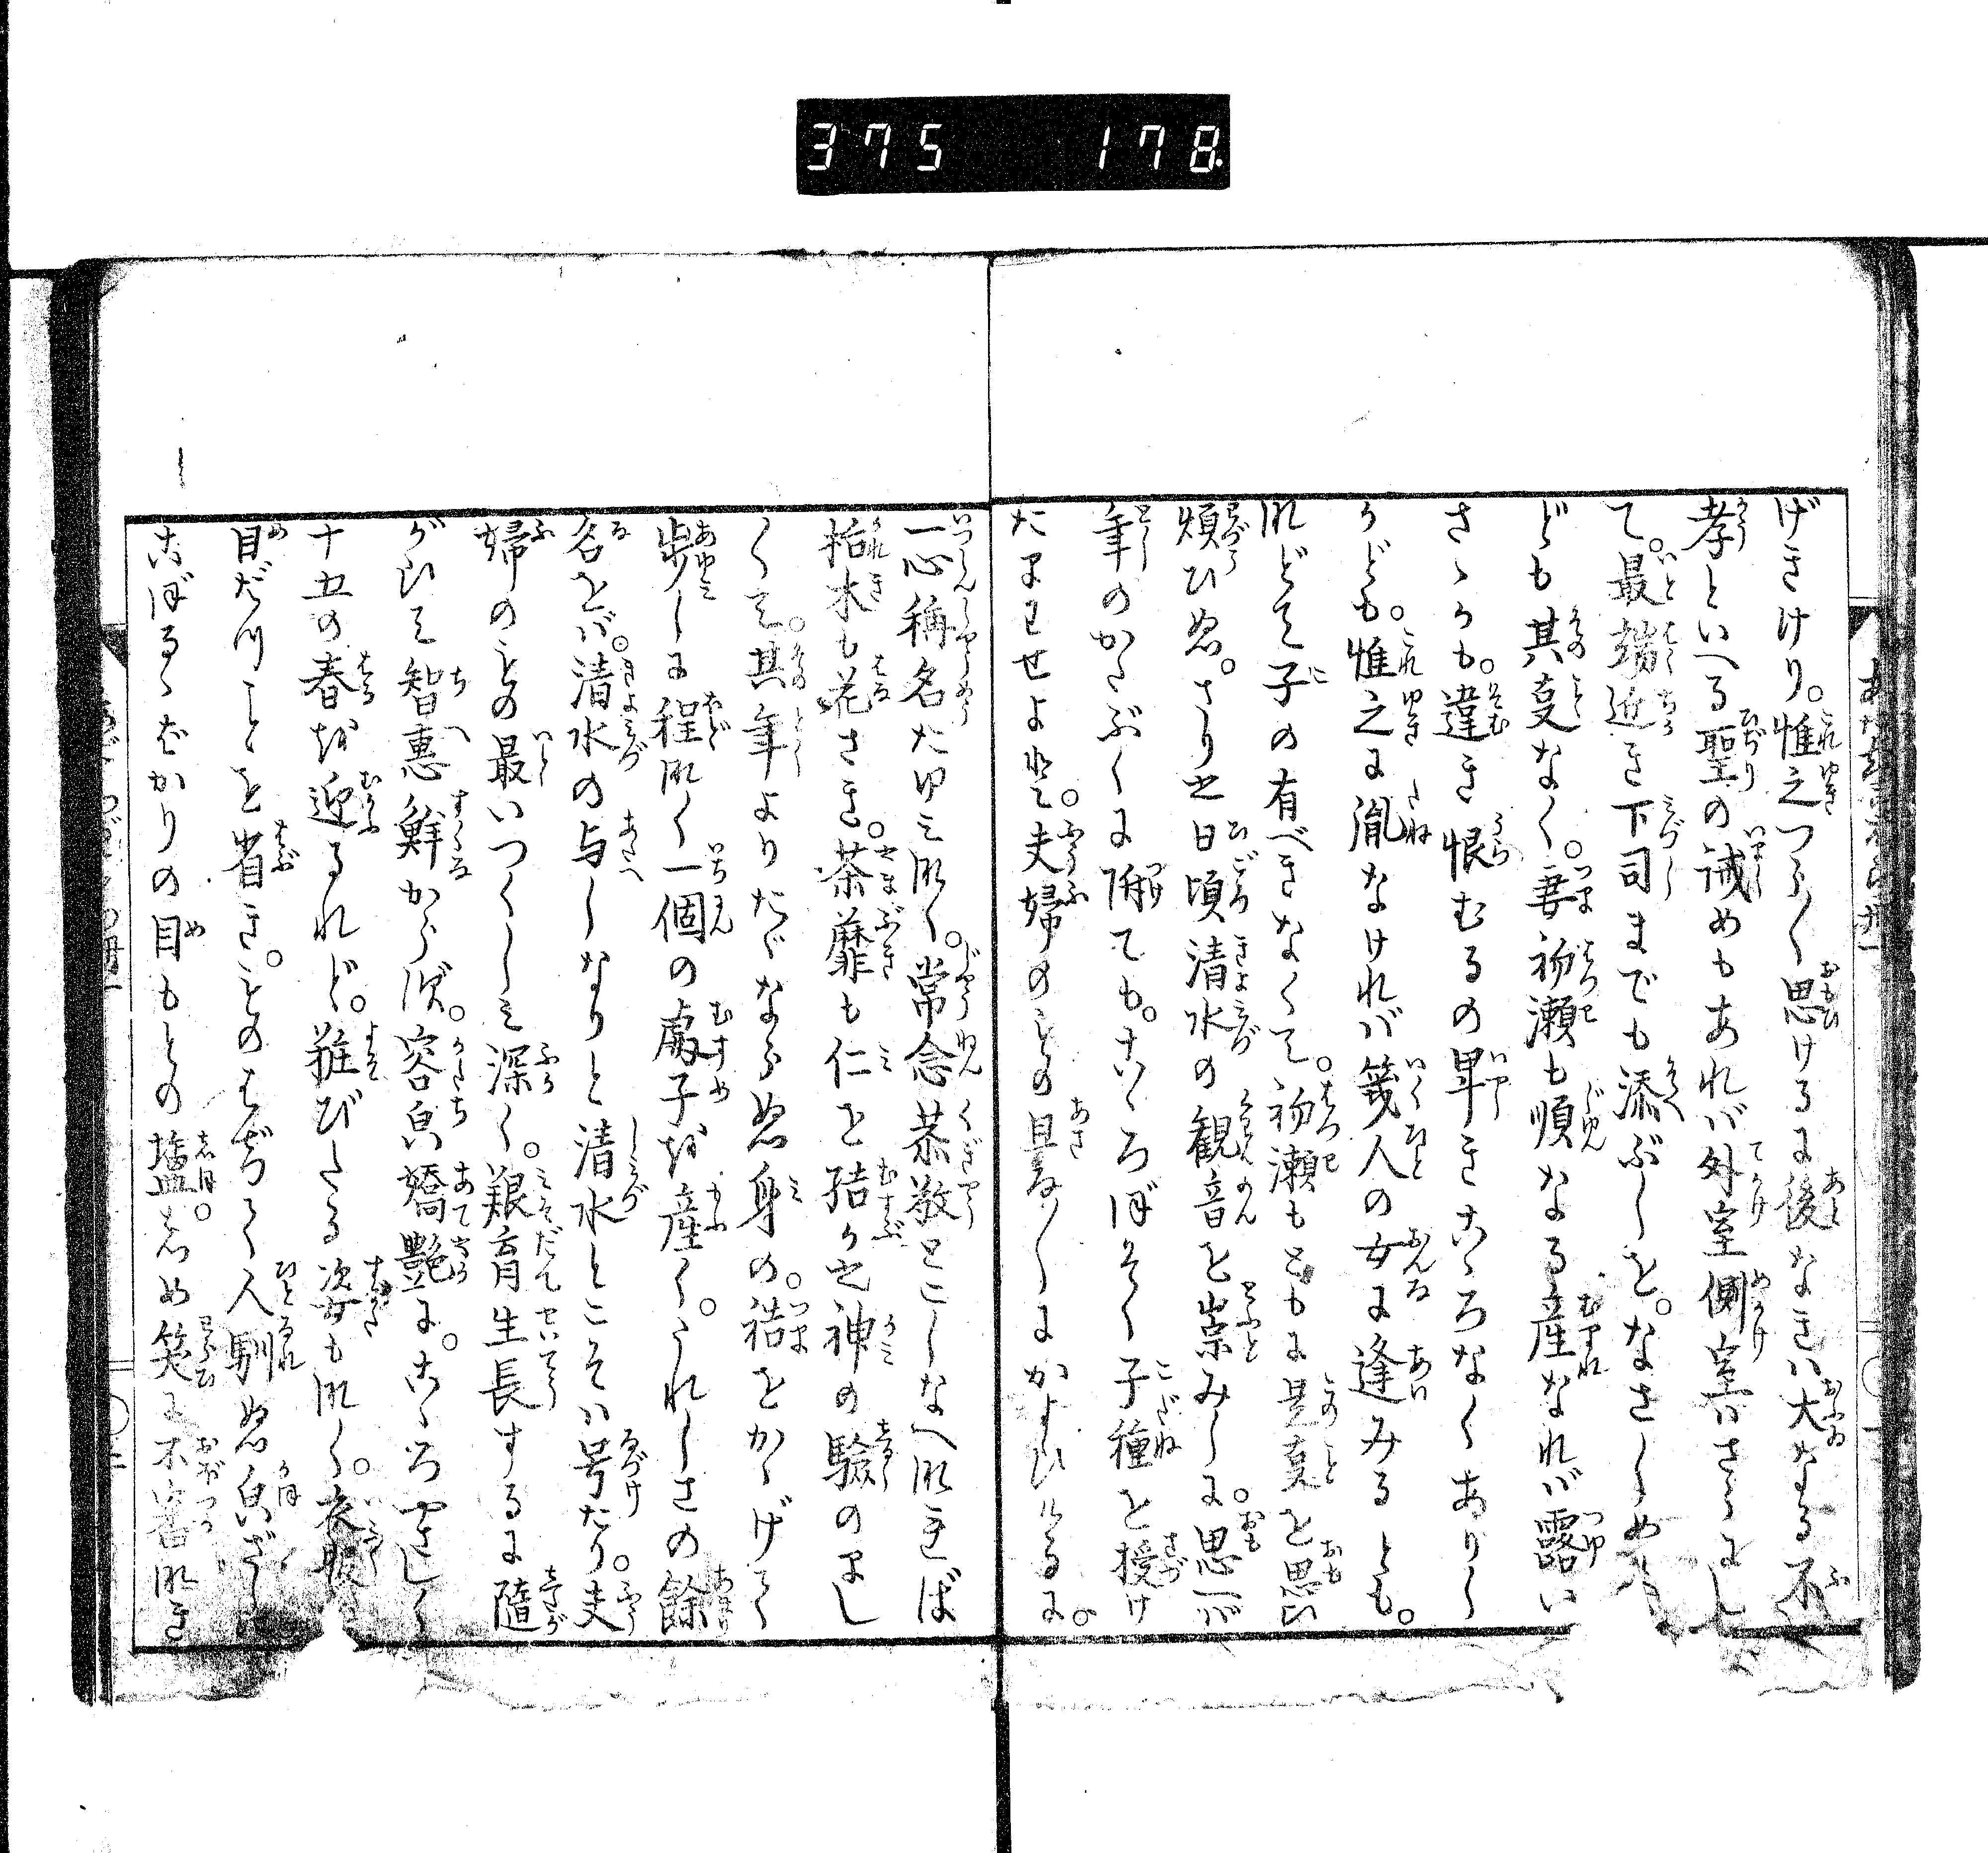 375 178
げきけり。惟之つら〳〵思けるは後なきハ大なる不
孝といへる聖の誡めもあれバ外室側室ハさらにし
て。最端近き下司までも添ぶしを。なさしめ
ども其夏なく。妻初瀬も順なる産なれバ露い
さゝかも。違き恨むるの卑きこゝろなくありし
かども。惟之に胤なければ幾人の女に逢みるとも。
ルどて子の有べきなくて。初瀬もともに是夏を思ひ
煩ひぬ。さり之日頃清水の観音を崇みしに。思へバ
年のかたぶくに随ても。こゝろぼそく子種を授け
たまはせよと。夫婦のもの旦な〳〵にかよひけるに。
一心称名たゆみなく。常念恭敬をこしなへなれば
枯木も花さき。茶蘼も仁を結ぶ之神の験のまし
くて。其年よりたゞならぬ身の。褂をかゝげて
歩しに程なく一個の處子を産く。うれしさの餘
名をバ。清水の与しなりと清水とこそハ号たり。夫
婦のもの最いつくしみ深く。艱育生長するに隨
がひて智恵鮮からず。容皃嬌艶に。こゝろやさしく
十五の春を迎るれど。粧びたる姿もなく。衣服
目だつことを省き。ものはぢて人馴ぬ皃ざし
こぼるゝばかりの目もとの塩。しめ笑に不審なき